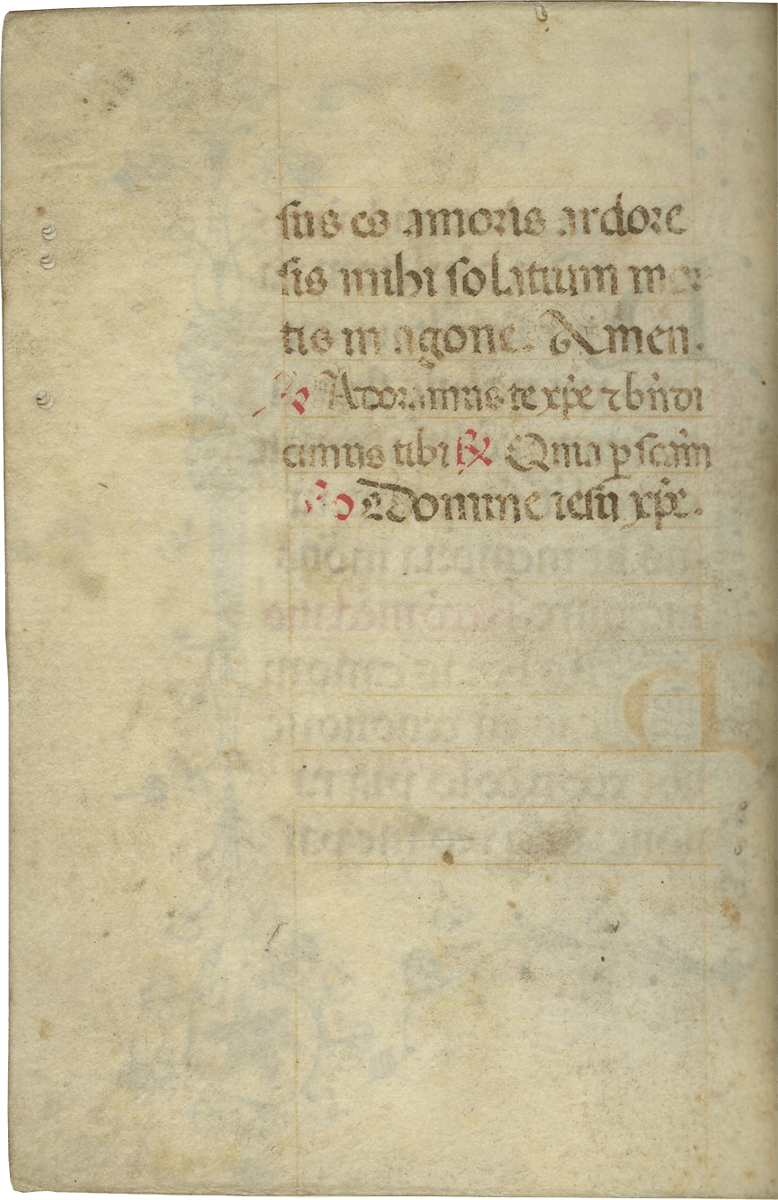 sus es amoris ardore
sis mihi solatium mor
tis in agone. Amen.
Adoramus te xp̄e ⁊ bn̄di
cimus tibi ꝶ Quia ꝑ sc̄am
Domine iesu xp̄e.